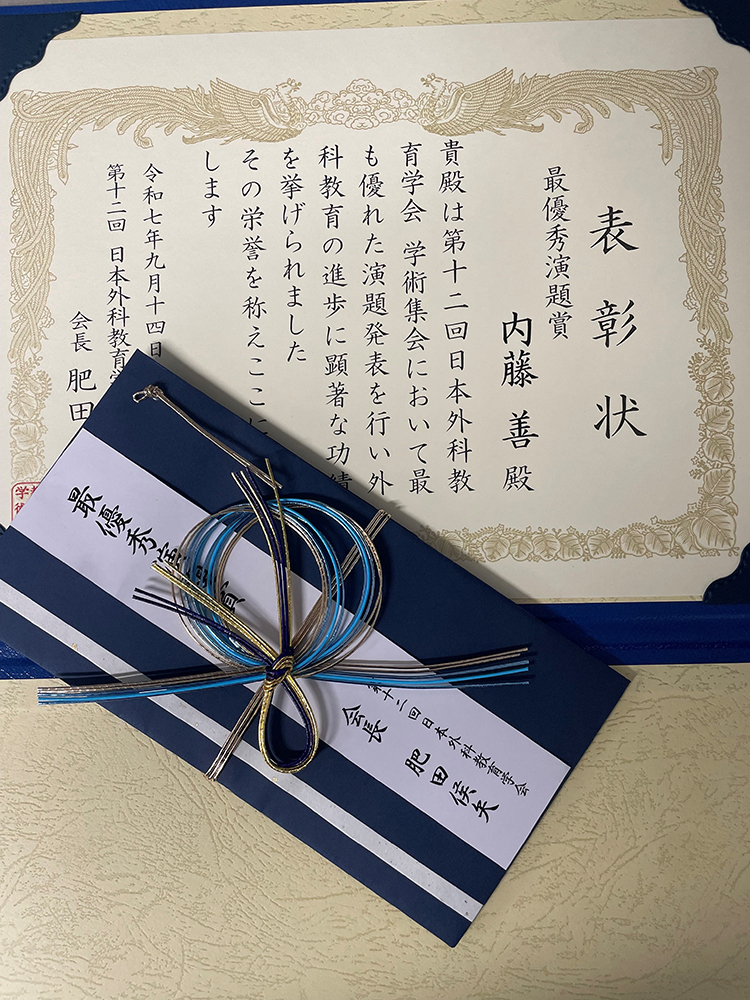 表彰状
最優秀演題賞
内藤 善 殿
貴殿は第十二回日本外科教
育学会 学術集会において最
も優れた演題発表を行い外
科教育の進歩に顕著な功績
を挙げられました
その栄誉を称えここに
します
令和七年九月十四日
第十二回 日本外科教育学
会長 肥田
最優秀演題賞
十二回日本外科教育学会
会長 肥田侯矢